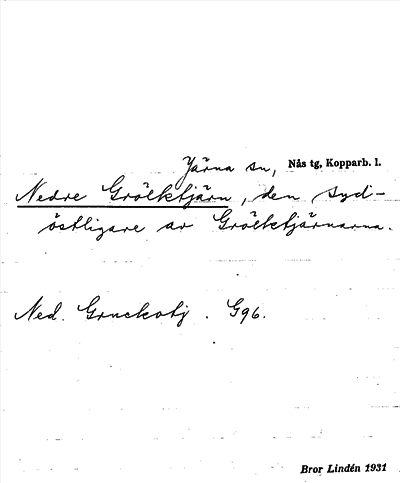 Järna sn, Nås tg, Kopparb. l.
Nedre Grölktjärn, den syd-
östligare av Grölktjärnarna.
Ned. Gruckotj. G96.
Bror Lindén 1931